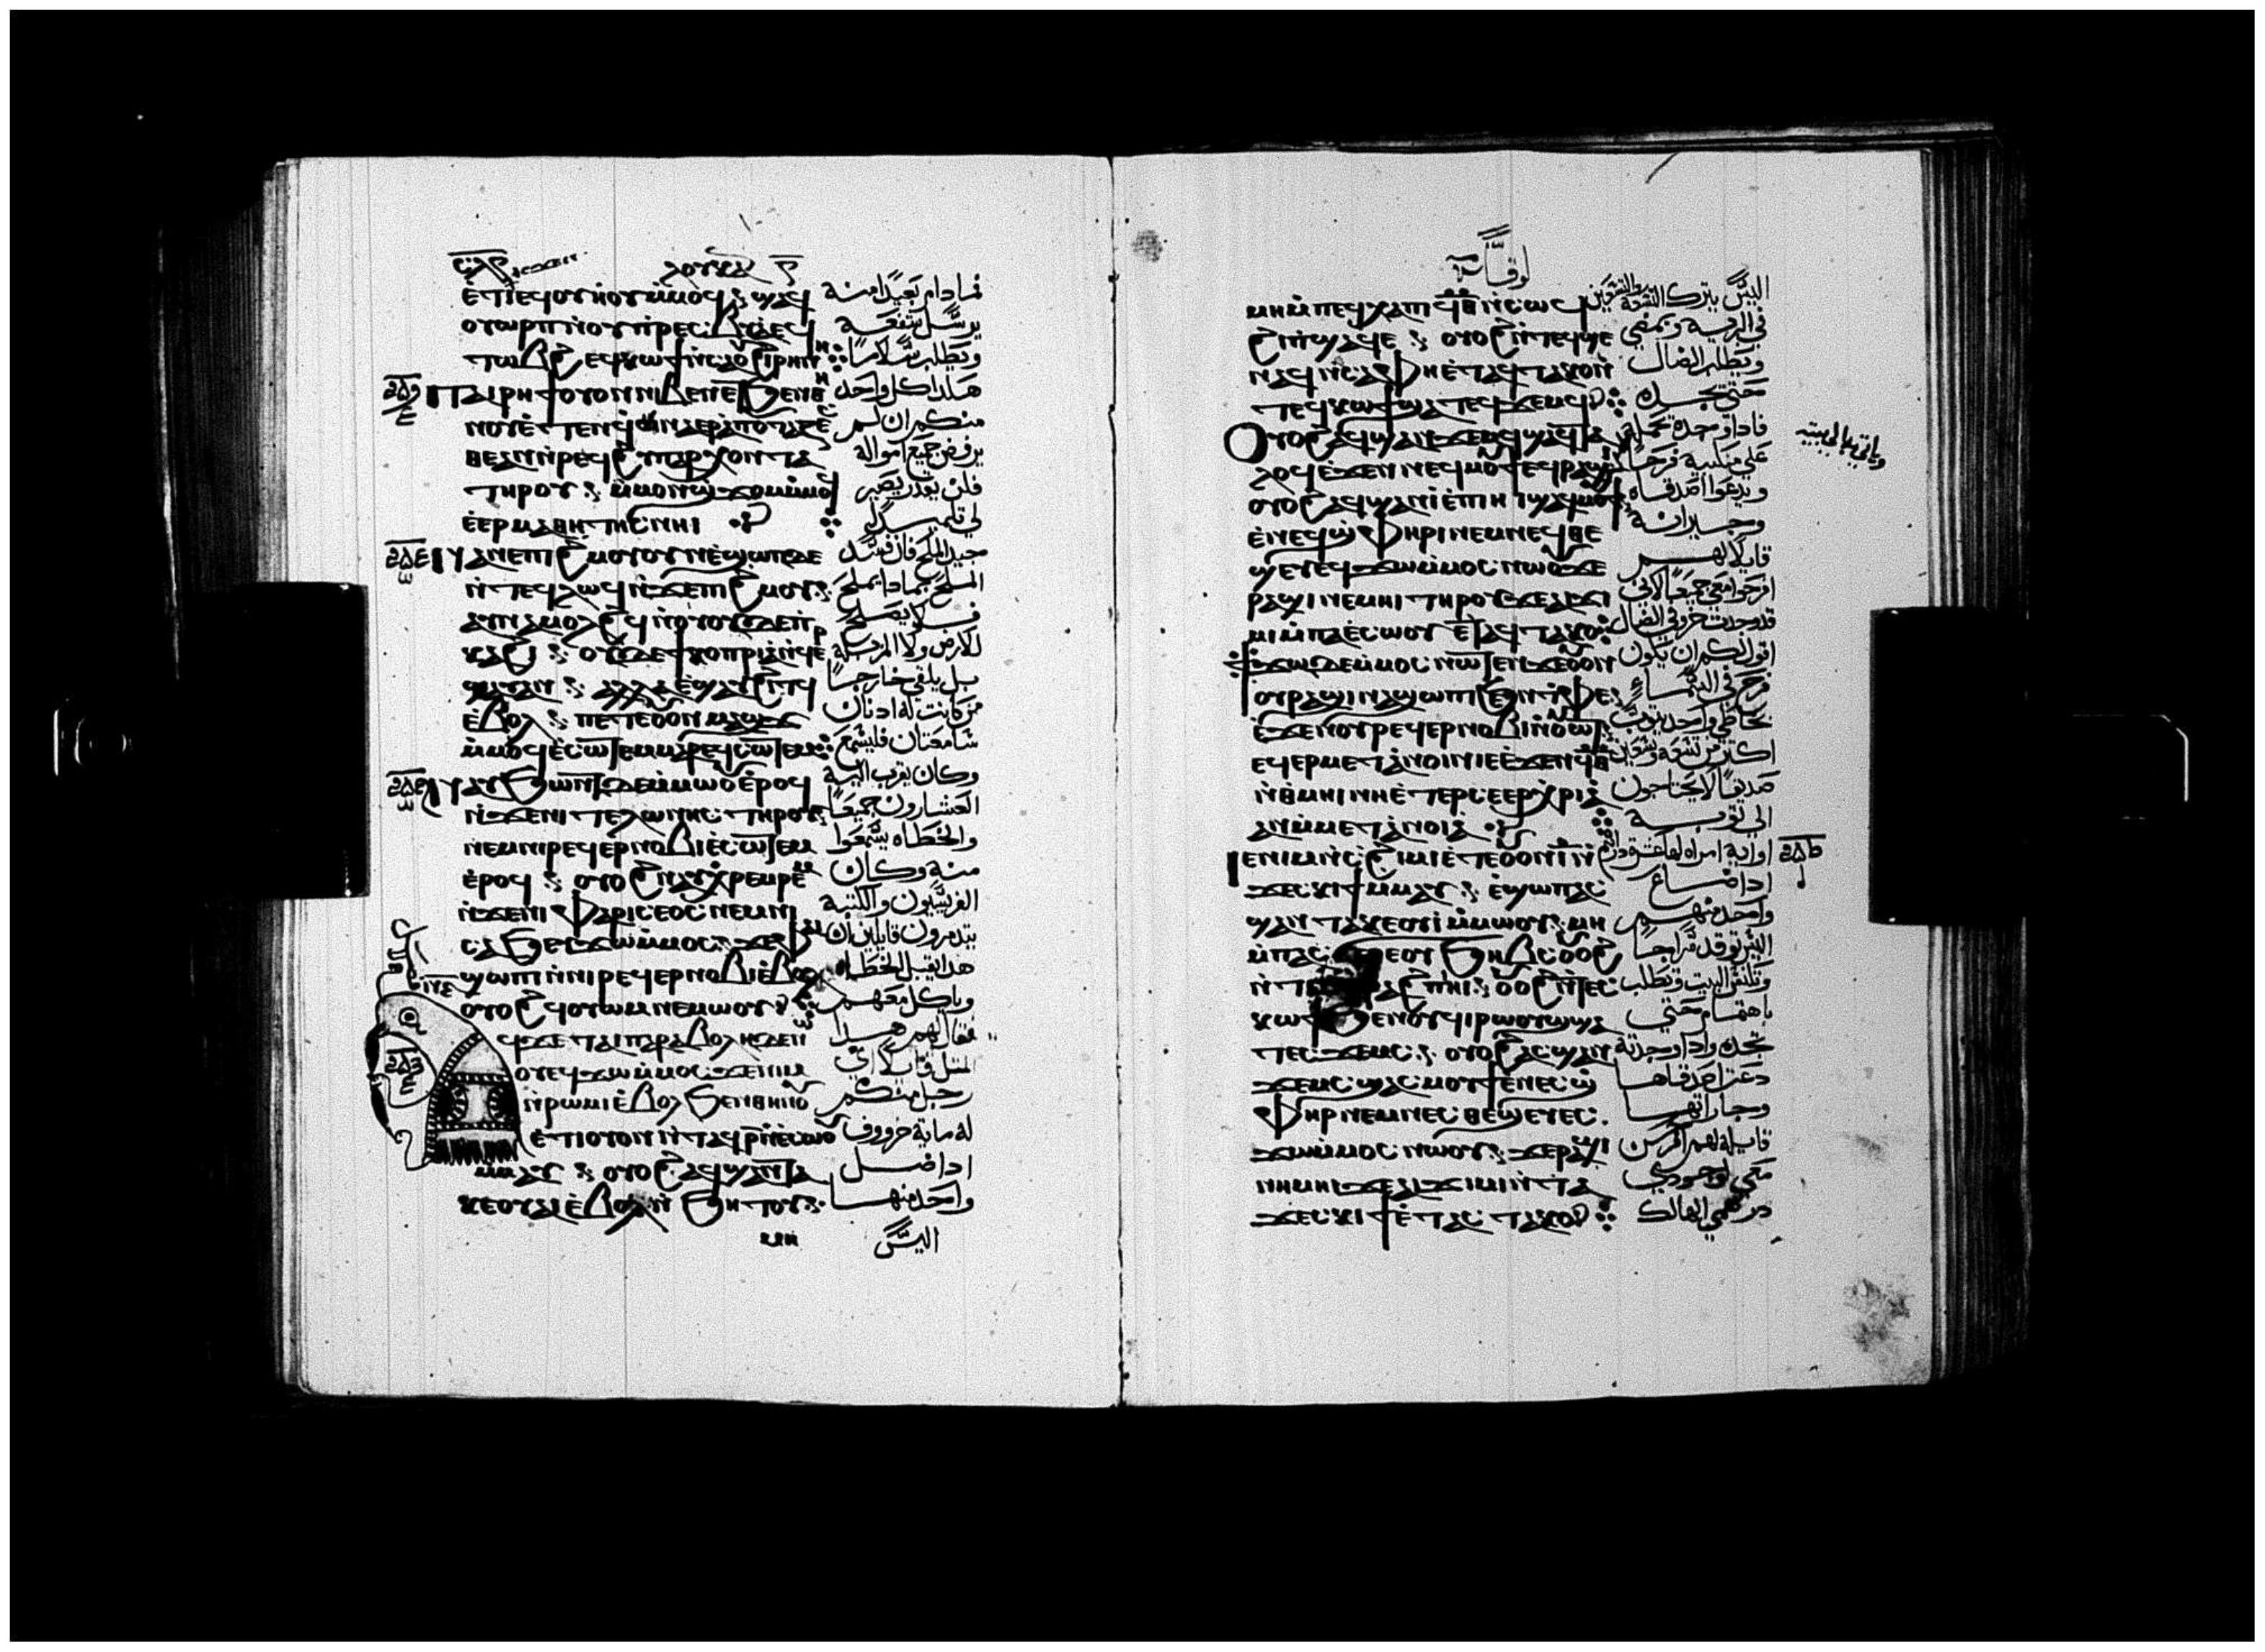 ⲗⲟⲩⲕⲁ
ⲉⲧⲓⲉϥⲟⲩⲏⲟⲩⲙⲙⲟϥ ϣⲁϥ
ⲟⲩⲱⲣⲡⲛⲟⲩⲡⲣⲉⲥⲃⲓⲁⲉϥ
ⲧⲱⲃϩ ⲉϥⲕⲱϯⲛⲥⲁϩⲓⲣⲏⲛⲏ
ⲡⲁⲓⲣⲏϯⲟⲩⲟⲛⲛⲓⲃⲉⲛⲉⲧϧⲉⲛⲑⲏ
ⲛⲟⲩⲉⲧⲉⲛϥⲛⲁⲉⲣⲁⲡⲟⲧⲁⲍⲉ
ⲑⲉⲁⲛⲛⲏⲉϥϩⲩⲡⲁⲣⲭⲟⲛⲧⲁ
ⲧⲏⲣⲟⲩ ⲙⲙⲟⲛϣϫⲟⲙⲙⲙⲟϥ
ⲉⲉⲣⲙⲁⲑⲏⲧⲏⲥⲛⲏⲓ
ⲛⲁⲛⲉⲡⲓϩⲙⲟⲩⲟⲩⲛⲉϣⲱⲡⲇⲉ
ⲛⲧⲉϥⲗⲱϥⲛϫⲉⲡⲓϩⲙⲟⲩ
ⲁⲩⲛⲁⲙⲟⲗϩϥⲛⲟⲩⲟⲩⲇⲉⲡ
ⲕⲁϩⲓ ⲟⲩⲇⲉϯⲕⲟⲡⲣⲓⲁⲛϥⲉ
ⲣϣⲁⲩⲁⲛ ⲁⲗⲗⲁⲉϣⲁⲩϩⲓⲧϥ
ⲉⲃⲟⲗ ⲡⲉⲧⲉⲟⲩⲟⲛⲙⲁϣϫ
ⲙⲙⲟϥⲉⲥⲱⲧⲉⲙⲙⲁⲣⲉϥⲥⲱⲧⲉⲙ
ⲛⲁⲩϧⲱⲛⲧⲇⲉⲙⲙⲱⲟⲩⲉⲣⲟϥ
ⲛϫⲉⲛⲓⲧⲉⲗⲱⲛⲏⲥ ⲧⲏⲣⲟⲩ
ⲛⲉⲙⲛⲓⲣⲉϥⲉⲣⲛⲟⲃⲓⲉⲥⲱⲧⲉⲙ
ⲉⲣⲟϥ ⲟⲩⲟϩⲛⲁⲩⲭⲣⲉⲙⲣⲉⲙ
ⲛϫⲉⲛⲓⲫⲁⲣⲓⲥⲉⲟⲥ ⲛⲉⲙⲛⲓ
ⲥⲁϧⲉⲩϫⲱⲙⲙⲟⲥ ϫⲉⲫⲁⲓ
ϣⲱⲡⲛⲛⲓⲣⲉϥⲉⲣⲛⲟⲃⲓⲉⲣⲟϥ
ⲟⲩⲟϩϥⲟⲩⲱⲙⲛⲉⲙⲱⲟⲩ
ϥϫⲉ ⲧⲁⲓⲡⲁⲣⲁⲃⲟⲗⲏⲇⲉⲛ
ⲱⲟⲩⲉϥϫⲱⲙⲙⲟⲥ ϫⲉⲛⲓⲙ
ⲛⲣⲱⲙⲓⲉⲃⲟⲗϧⲉⲛⲑⲏⲛⲟⲩ
ⲉⲧⲉⲟⲩⲟⲛⲛⲧⲁϥⲣⲛⲉⲥⲱⲟⲩ
ⲙⲙⲁⲩ ⲟⲩⲟϩⲁϥϣⲁⲛⲧⲁ
ⲕⲉⲟⲩⲁⲓⲉⲃⲟⲗⲛϧⲏⲧⲟⲩ
ⲙⲏ
فمادام بعيدًا منه
يرسل شفعه
ويطلب سلامًا
هكذا كل واحد
منكم ان لم
يرفض جميع امواله
فلن يقدر يصير
لي تلميذًا
جيد الملح فان فسد
الملح بماذا يملح
فلا يصلح
للارض ولا المزبلة
بل يلقي خارجًا
من كانت له ادنان
سامعتان فليسمع
وكان يقرب اليه
العشارون جميعًا
والخطاه يسمعوا
منه وكان
الفريسيون والكتبه
يتدمرون قايلين ان
هدا يقبل الخطاه
وياكل معهم
فقال لهم هدا
المتل قايلًا اي
رجل منكم
له ماية خروف
ادا ضل
واحد منها
اليس
لوقا
ⲙⲏⲙⲡⲉϥⲭⲁⲡϥⲑⲛⲥⲱϥ
ϩⲓⲡϣⲁϥⲉ ⲟⲩⲟϩⲛⲧⲉϥϣⲉ
ⲛⲁϥⲛⲥⲁⲫⲏⲉⲧⲁϥⲧⲁⲕⲟⲛ
ⲧⲉϥⲕⲱϯϣⲁⲧⲉϥϫⲉⲙϥ
ⲟⲩⲟϩⲁϥϣⲁⲛϫⲉⲙϥϣⲁϥⲧⲁ
ⲗⲟϥⲉϫⲉⲛⲛⲉϥⲙⲟϯⲉϥⲣⲁϣⲓ
ⲟⲩⲟϩⲁϥϣⲁⲛⲓⲉⲡⲓⲏⲓϣⲁϥⲙⲟⲩϯ
ⲉⲛⲉϥϣⲫⲏⲣⲓⲛⲉⲙⲛⲉϥⲑⲉ
ϣⲉⲩⲉϥϫⲱⲙⲙⲟⲥ ⲛⲱⲟⲩϫⲉ
ⲣⲁϣⲓⲛⲉⲙⲏⲓ ⲧⲏⲣⲟⲩϫⲉⲁⲓϫⲓ
ⲙⲓⲙⲡⲁⲉⲥⲱⲟⲩ ⲉⲧⲁϥⲧⲁⲕⲟ
ϯϫⲱⲇⲉⲙⲙⲟⲥ ⲛⲱⲧⲉⲛϫⲉⲟⲩⲟⲛ
ⲟⲩⲣⲁϣⲓⲛⲁϣⲱⲡⲓϧⲉⲛⲧⲫⲉ
ⲉϫⲉⲛⲟⲩⲣⲉϥⲉⲣⲛⲟⲃⲓⲛⲟⲩⲱⲧ
ⲉϥⲉⲣⲙⲉⲧⲁⲛⲟⲓⲛⲓⲉⲉϫⲉⲛϥⲑ
ⲛⲑⲙⲏⲓⲛⲏⲉⲧⲉⲣⲥⲉⲉⲣⲭⲣⲓⲁ
ⲁⲛⲙⲙⲉⲧⲁⲛⲟⲓⲁ
ⲓⲉⲛⲓⲙⲛⲥϩⲓⲙⲓⲉⲧⲉⲟⲩⲟⲛⲓⲛ
ϫⲉⲥⲕⲓϯⲙⲙⲁⲩ ⲉϣⲱⲡⲁⲥ
ϣⲁⲛⲧⲁⲕⲉⲟⲩⲓⲙⲙⲱⲟⲩ ⲙⲏ
ⲙⲡⲁⲥϭⲉⲣⲉⲟⲩϧⲏⲃⲥⲟⲩⲟϩ
ⲕⲱϯϧⲉⲛⲟⲩϥⲓⲣⲱⲟⲩϣϣⲁ
ⲧⲉⲥϫⲉⲙⲥ ⲟⲩⲟϩⲁⲥϣⲁⲛ
ϫⲉⲙⲥϣⲁⲥⲙⲟⲩϯⲉⲛⲉⲥϣ
ⲫⲏⲣⲛⲉⲙⲛⲉⲥⲑⲉϣⲉⲩⲉⲥ
ϫⲱⲙⲙⲟⲥ ⲛⲱⲟⲩ ϫⲉⲣⲁϣⲓ
ⲛⲏⲙⲏⲓϫⲉⲁⲓϫⲓⲙⲓⲛⲧⲁ
ϫⲉⲥⲕⲓϯⲉⲧⲁⲥⲧⲁⲕⲟ
اليس يترك التسعة والتسعين
في البريه ويمضي
ويطلب الضال
حتى يجده
فادا وجده يحمله
على منكبيه فرحًا
ويدعوا اصدقاه
وجيرانه
قايلًا لهم
افرحوا معي جميعًا لاني
قد وجدت خروفي الضال
اقول لكم ان يكون
فرح في السماء
بخاطي واحد يتوب
اكتر من تسعه وتسعين
صديقًا لا يحتاجون
الى توبه
اواية امراه لها عشرة دراهم
ادا ضاع
واحد منهم
اليس توقد سراجًا
وتكنس البيت وتطلب
باهتمام حتي
تجده وادا وجدته
دعت اصدقاها
وجاراتها
قايله لهم افرحن
معي لوجودي
درهمي الهالك
وياتي به الى بيته